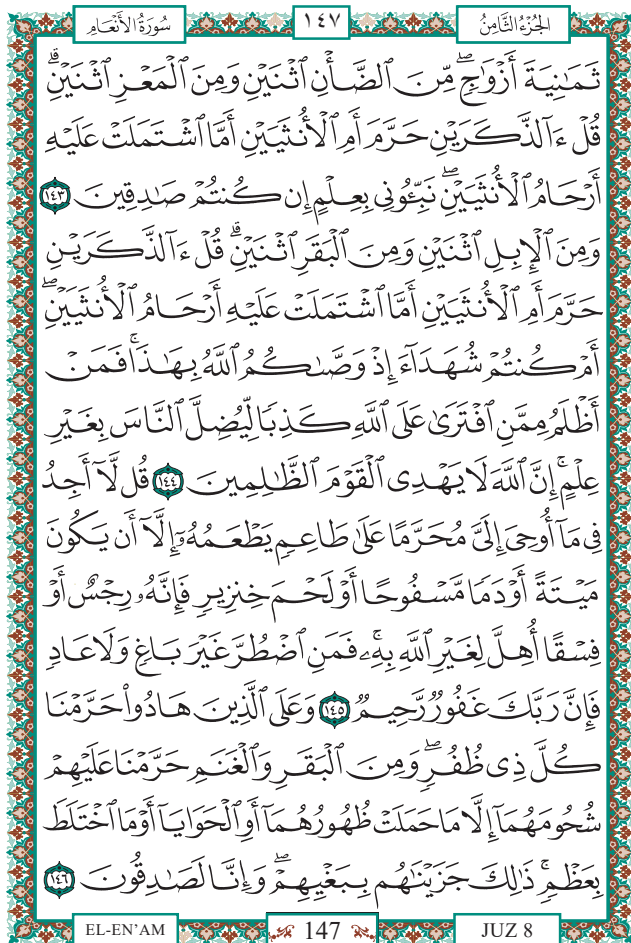 سُورَةُ الْأَنْعَامِ ١٤٧ الْجُزْءُ الثَّامِنُ
ثَمَٰنِيَةَ أَزْوَٰجٍۖ مِّنَ ٱلضَّأْنِ ٱثْنَيْنِ وَمِنَ ٱلْمَعْزِ ٱثْنَيْنِۗ
قُلْ ءَآلذَّكَرَيْنِ حَرَّمَ أَمِ ٱلْأُنثَيَيْنِ أَمَّا ٱشْتَمَلَتْ عَلَيْهِ
أَرْحَامُ ٱلْأُنثَيَيْنِۖ نَبِّـُٔونِى بِعِلْمٍ إِن كُنتُمْ صَٰدِقِينَ ١٤٣
وَمِنَ ٱلْإِبِلِ ٱثْنَيْنِ وَمِنَ ٱلْبَقَرِ ٱثْنَيْنِۗ قُلْ ءَآلذَّكَرَيْنِ
حَرَّمَ أَمِ ٱلْأُنثَيَيْنِ أَمَّا ٱشْتَمَلَتْ عَلَيْهِ أَرْحَامُ ٱلْأُنثَيَيْنِۖ
أَمْ كُنتُمْ شُهَدَآءَ إِذْ وَصَّىٰكُمُ ٱللَّهُ بِهَٰذَاۚ فَمَنْ
أَظْلَمُ مِمَّنِ ٱفْتَرَىٰ عَلَى ٱللَّهِ كَذِبًا لِّيُضِلَّ ٱلنَّاسَ بِغَيْرِ
عِلْمٍۚ إِنَّ ٱللَّهَ لَا يَهْدِى ٱلْقَوْمَ ٱلظَّٰلِمِينَ ١٤٤ قُل لَّآ أَجِدُ
فِى مَآ أُوحِىَ إِلَىَّ مُحَرَّمًا عَلَىٰ طَاعِمٍ يَطْعَمُهُۥٓ إِلَّآ أَن يَكُونَ
مَيْتَةً أَوْ دَمًا مَّسْفُوحًا أَوْ لَحْمَ خِنزِيرٍ فَإِنَّهُۥ رِجْسٌ أَوْ
فِسْقًا أُهِلَّ لِغَيْرِ ٱللَّهِ بِهِۦۚ فَمَنِ ٱضْطُرَّ غَيْرَ بَاغٍ وَلَا عَادٍ
فَإِنَّ رَبَّكَ غَفُورٌ رَّحِيمٌ ١٤٥ وَعَلَى ٱلَّذِينَ هَادُوا۟ حَرَّمْنَا
كُلَّ ذِى ظُفُرٍۖ وَمِنَ ٱلْبَقَرِ وَٱلْغَنَمِ حَرَّمْنَا عَلَيْهِمْ
شُحُومَهُمَآ إِلَّا مَا حَمَلَتْ ظُهُورُهُمَآ أَوِ ٱلْحَوَايَآ أَوْ مَا ٱخْتَلَطَ
بِعَظْمٍۚ ذَٰلِكَ جَزَيْنَٰهُم بِبَغْيِهِمْۖ وَإِنَّا لَصَٰدِقُونَ ١٤٦
EL-EN'AM 147 JUZ 8